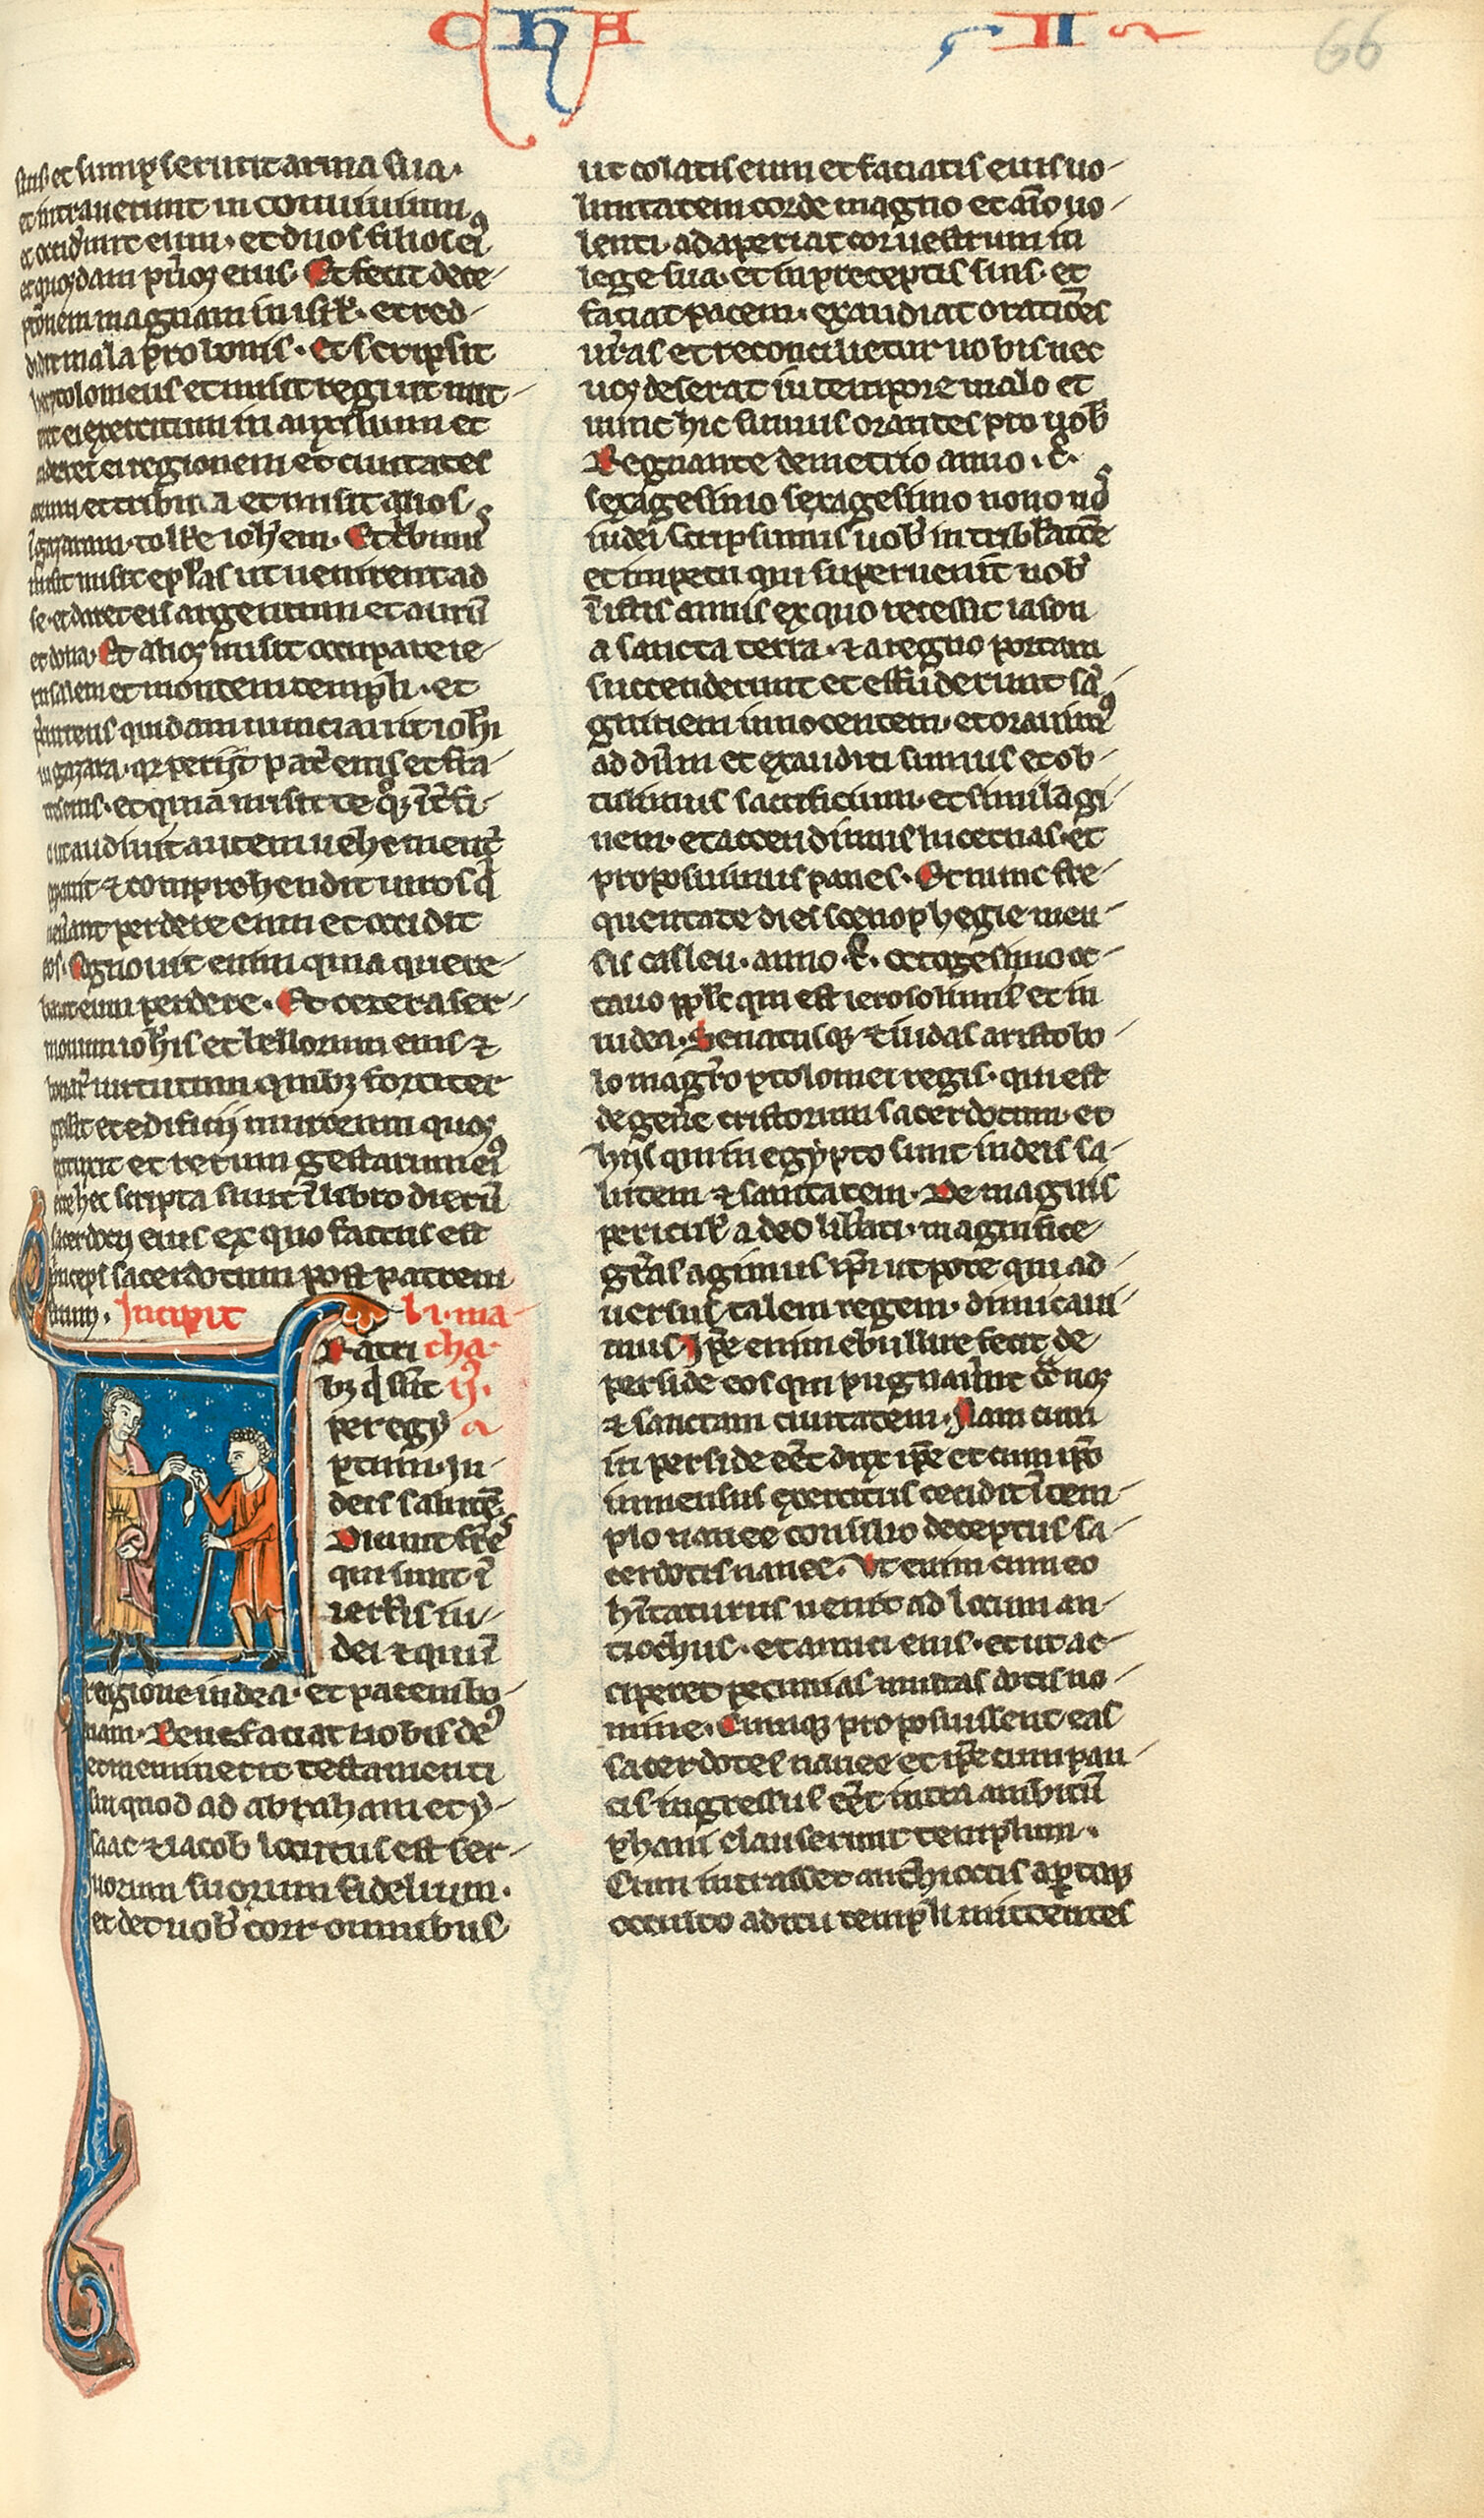 CHA II 66
suis et sumpserunt arma sua.
et intrauerunt in conuiuium
et occider̄unt eum. et duos filios eiꝰ
et quosdam pueros eius. Et fecit dece-
ptōnem magnam in isrł. et red-
didit mala pro bonis. Et scripsit
ptolomeus et misit regi ut mit-
teret ei exercitum in auxilium et
traderet ei regionem et ciuitates
eorum et tributa et misit alios
ī gazaram. tollere ioh̄em. Et tribuni
misit ep̄las ut uenirent ad
se. et daret eis argentum et aurū
et dona. Et alios misit occupare ie-
rusalem et montem templi. et
p̄currens quidam nunciauit ioh̄i
in gazara. qꝛ perijt pater̄ eius et fra-
tres eius. et quia misit te quoqꝫ īterfi-
ci ut audiuit autem uehement̄
expauit ⁊ comprehendit uiros q̄
uen̄ant perdere eum et occidit
eos. Cognouit enim quia quere-
bant eum perdere. Et cetera ser-
monum ioh̄is et bellorum eius ⁊
bonar̄ uirtutum. quibꝫ fortiter
gessit et edificij murorum quos
extruxit et rerum gestarum eiꝰ
ecce hec scripta sunt ī libro dierū
sacerdotij eius ex quo factus est
princeps sacerdotum post patrem
suum. Incipit li. ma-
Fratri cha-
bꝫ q̄ sūt ij.
per egy a
ptum. iu-
deis salutē
Dicunt fr̄es
qui sunt ī
ierłis iu-
dei ⁊ qui ī
regione iudea. et pacem bo-
nam. Benefaciat uobis deꝰ
et meminerit testamenti
sui quod ad abraham et y-
saac ⁊ iacob locutus est ser-
uorum suorum fidelium.
et det uob̄ cor omnibus
ut colatis eum et faciatis eius uo-
luntatem corde magno et aīo uo-
lenti. adaperiat cor uestrum in
lege sua. et in preceptis suis. et
faciat pacem. exaudiat oratiōes
ur̄as et reconcilietur uobis nec
uos deserat in tempore malo et
nunc hic sumus orantes pro uob̄
Regnante demetrio anno. c.
sexagesimo sexagesimo nono nos
iudei scripsimus uob̄ in tribłatōe
et impetu qui superuenit uob̄
ī istis annis ex quo recessit iason
a sancta terra. ⁊ a regno portam
succenderunt et effuderunt sā-
guinem innocentem. et orauimꝰ
ad dūm et exauditi sumus et ob-
tulimus sacrificium. et similagi-
nem. et accendimus lucernas. et
proposuimus panes. Et nunc fre-
quentate dies scenophegie men-
sis casleu. anno. c. octogesimo oc-
tauo ppłs qui est ierosolimis et in
iudea. Senatusqꝫ ⁊ iudas aristobo-
lo magr̄o ptolomei regis. qui est
de gen̄e cristorum sacerdotum. et
hijs qui in egypto sunt iudeis sa-
lutem ⁊ sanitatem. De magnis
pericuł a deo lib̄ati. magnifice
gr̄as agimus ip̄i utpote qui ad-
uersus talem regem. dimicaui-
mus. Ip̄e enim ebullire fecit de
perside eos qui pugnauer̄unt cōt̄ nos
⁊ sanctam ciuitatem. Nam cum
in perside eēt dux ip̄e et cum ip̄o
immensus exercitus cecidit ī tem-
plo nanee consilio deceptus sa-
cerdotis nanee. Et enim cum eo
h̄itaturus uenit ad locum an-
tiochus. et amici eius. et ut ac-
ciperet pecunias multas dotis no-
mine. Cumqꝫ proposuissent eas
sacerdotes nanee et ip̄e cum pau-
cis ingressus eēt intra ambitū
phani clauserunt templum.
Cum intrasset anthiocus ap̄toqꝫ
occulto aditu templi mittentes